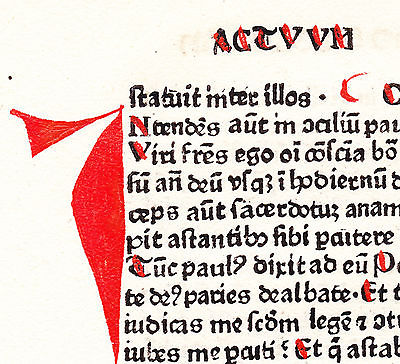 ACTVVM
I
ſtatuit inter illos · C
Ntendēs aūt in ↄciliū pau
Viri fr̄es ego oī cōſcīa bō
ſū an̄ deū vſqꝫ ī hodiernū d
ceps aūt ſacerdotuꝫ anam
pit aſtantibꝰ ſibi ꝑcutere
Tūc paulꝰ dixit ad eū
te deꝰ paries dealbate · Et t
iudicas me ſcd̄m legē ⁊ ↄt
iubes me ꝑcuti : Et q̄ aſtab